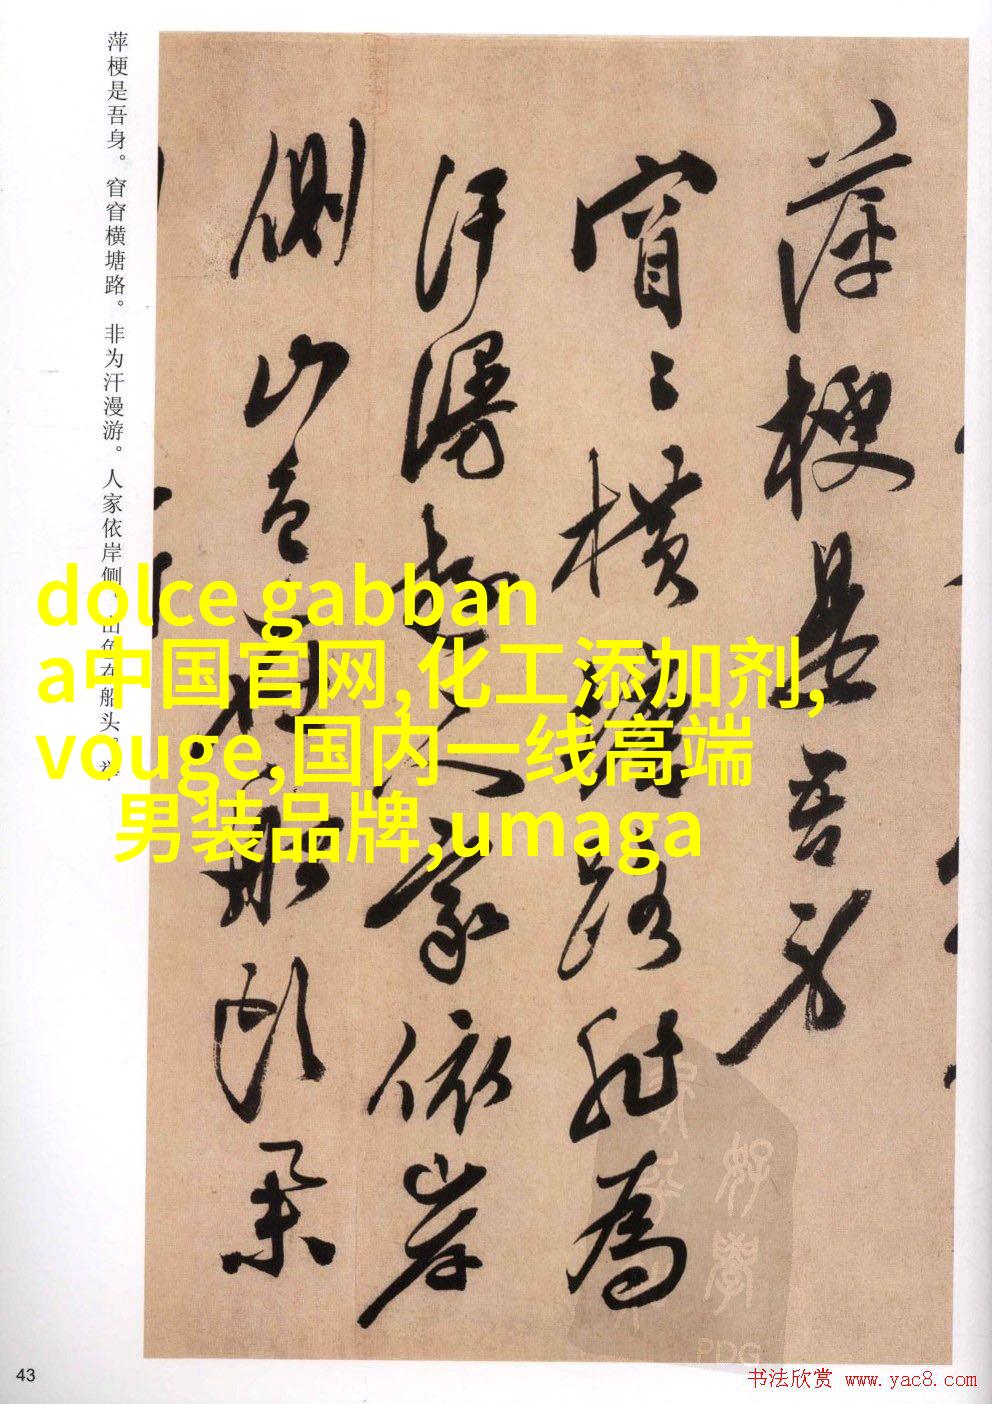 萍梗是吾身。窅窅横塘路。非为汗漫游。人家依岸侧。山色在船头。
萍梗是吾身
窅〻橫塘路非為
汗漫遊人家依岸
側山色在船頭
dolce gabban
a中国官网,化工添加剂,
vouge,国内一线高端
男装品牌,umaga
PDG
43
书法欣赏 www.yac8.com